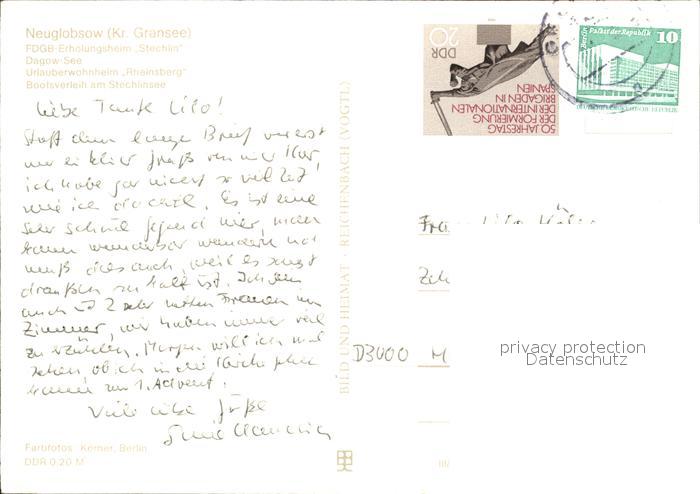 Neuglobsow (Kr. Gransee)
FDGB-Erholungsheim „Stechlin"
Dagow-See
Urlauberwohnheim „Rheinsberg"
Bootsverleih am Stechlinsee
Liebe Tante Lilo!
Statt dem lange Brief vorerst
nur ein kleiner Gruß von der Kur,
ich habe gar nicht so viel Zeit
wie ich dachte. Es ist eine
sehr schöne Gegend hier, man
kann wunderbar wandern und
muß dies auch, weil es sonst
draußen zu kalt ist. Ich bin
auch mit 2 sehr netten Frauen im
Zimmer, wir haben immer viel
zu erzählen. Morgen will ich mal
sehen ob ich in die Kirche gehen
kann zum 1. Advent.
Viele liebe Grüße
Farbfotos: Kerner, Berlin
DDR 0,20 M
BILD UND HEIMAT · REICHENBACH (VOGTL)
DDR
20
50. JAHRESTAG
DER FORMIERUNG
DER INTERNATIONALEN
BRIGADEN IN
SPANIEN
Berlin, Palast der Republik
10
DEUTSCHE DEMOKRATISCHE REPUBLIK
Frau Lilo
D3000 M
privacy protection
Datenschutz